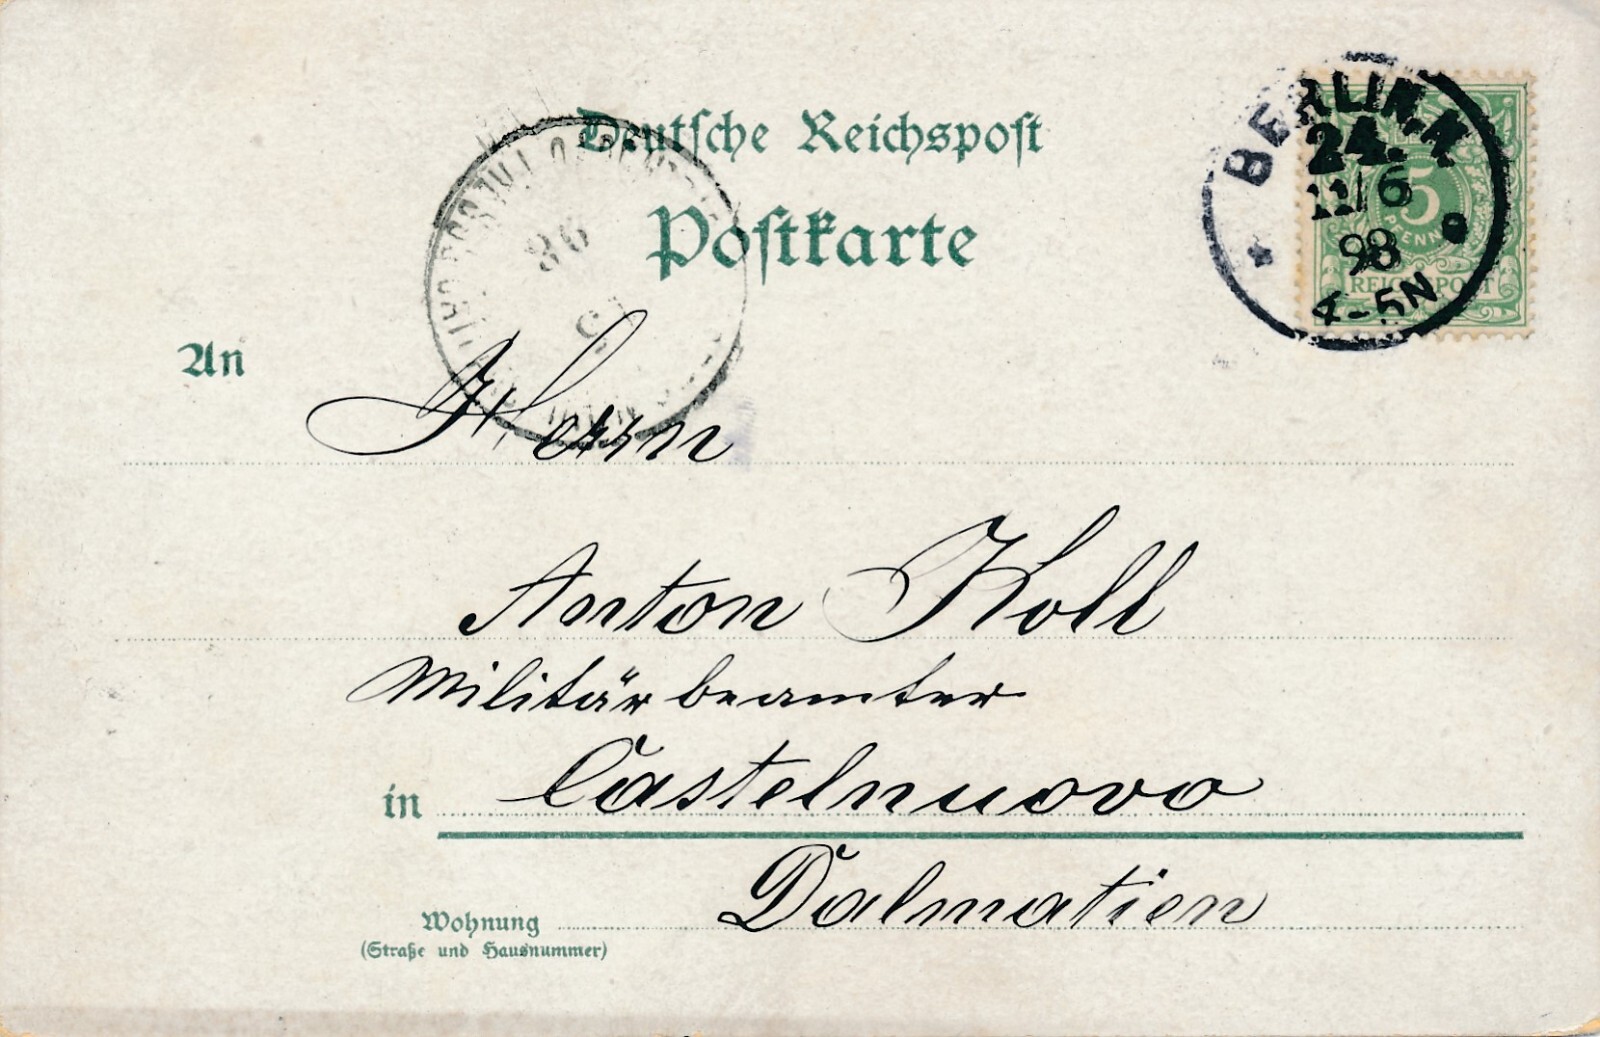 Deutsche Reichspost
Postkarte
BERLIN, N.
24.
11/6
98
4-5N
5
PFENNIG
REICHSPOST
An
Herrn
Anton Koll
Militärbeamter
in Castelnuovo
Dalmatien
Wohnung
(Straße und Hausnummer)